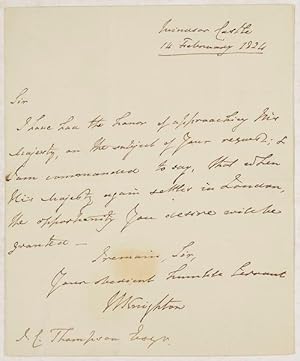 Windsor Castle
14 February 1824
Sir
I have had the honor of approaching His
Majesty, on the subject of Your request; &
I am commanded to say, that when
His Majesty again settles in London,
the opportunity You desire will be
granted —
I remain, Sir,
Your obedient humble Servant
W Knighton
Thompson Esqr.